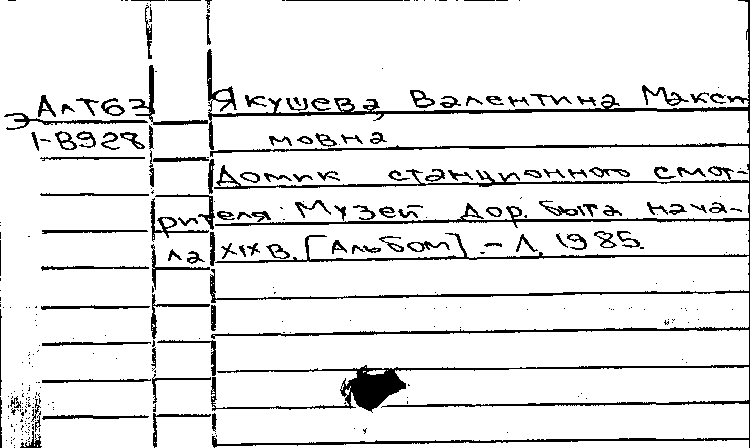 Э АлТ63 Якушева, Валентина Макси
1-В928 мовна
Домик станционного смот-
рителя: Музей дор. быта нача-
ла XIX в. [Альбом]. - Л. 1985.